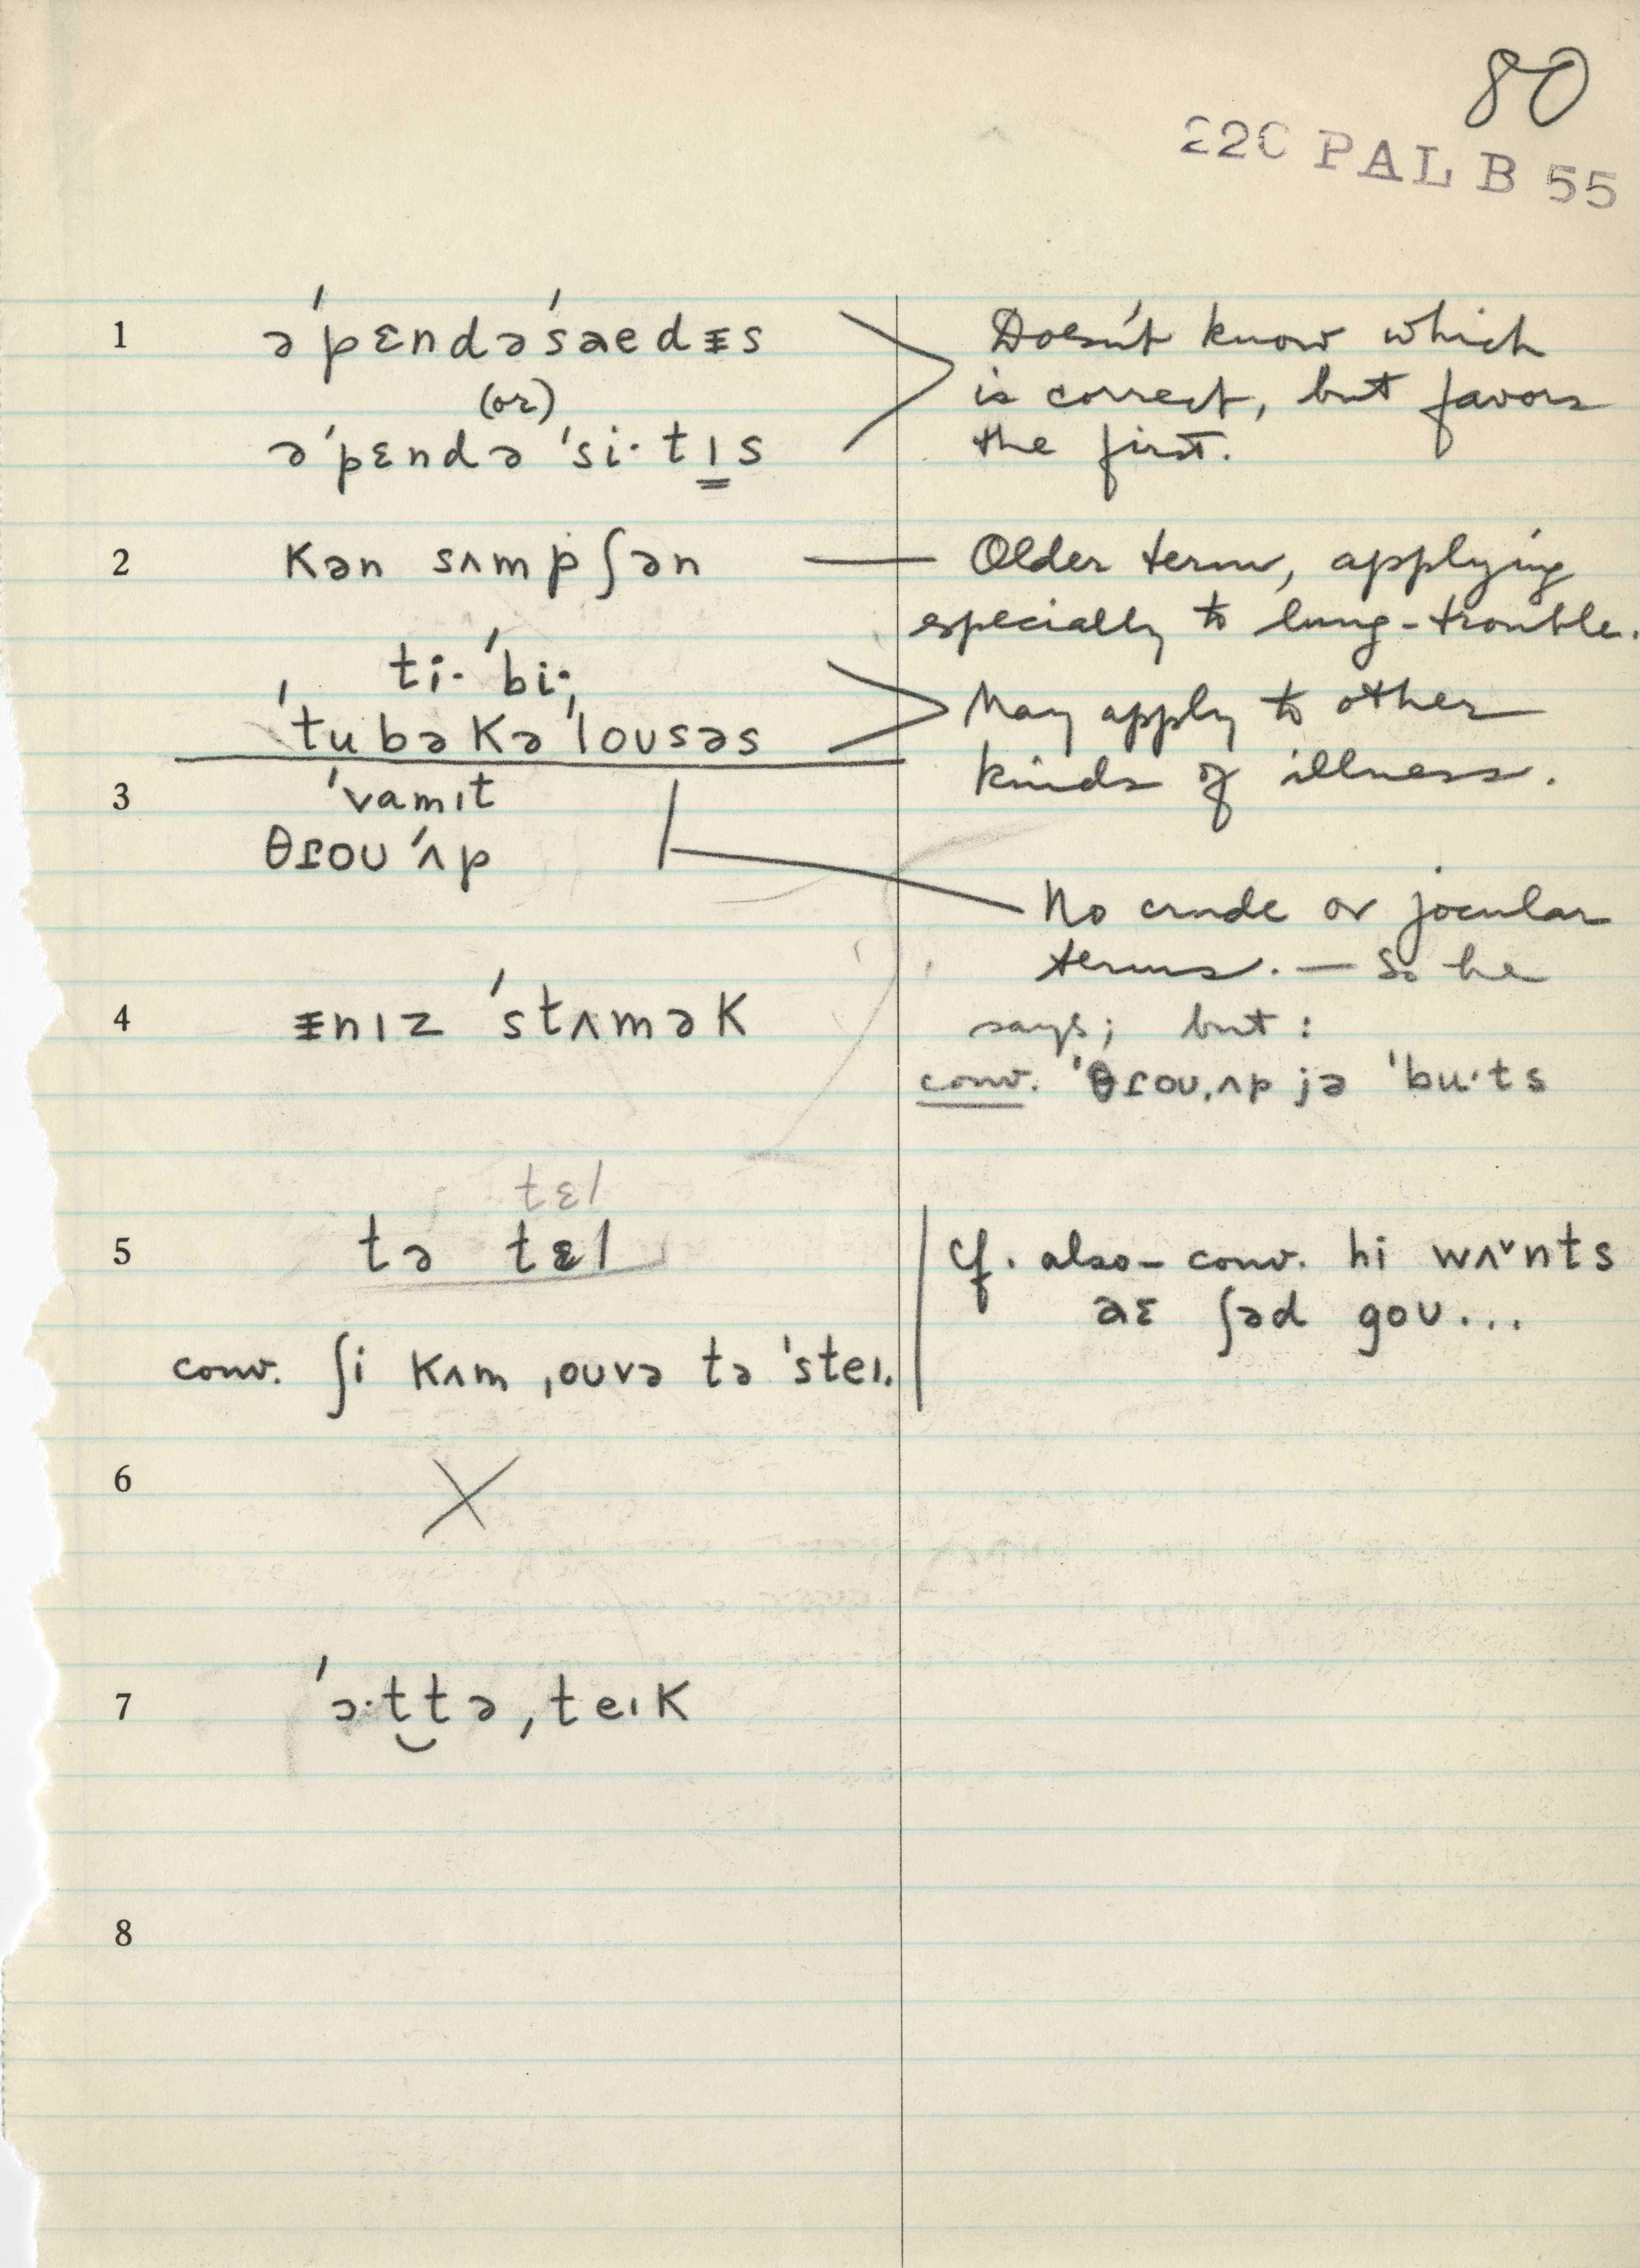 80
220 PAL B 55
1 ə ˈpɛndəˈsaedᵻs
Doesn't know which
(or)
is correct, but favors
ə ˈpɛndə ˈsi·tɪs
the first.
2 kən sʌmpʃən — Older term, applying
especially to lung-trouble.
ti· ˈbi·,
ˈtubəkəˈloʊsəs
May apply to other
kinds of illness.
3 ˈvamɪt
θɾoʊ ˈʌp
No crude or jocular
terms. — So he
4 ᵻnɪz ˈstʌmək
says; but:
conv. ˈθɾoʊˌʌp jə ˈbu·ts
tɛl
5 tə tɛl
cf. also – conv. hi wʌ˅nts
aɛ ʃəd goʊ...
conv. ʃi kʌm ˌoʊvə tə ˈsteɪ.
6 X
7 ˈɔ·t̮tə ˌteɪk
8